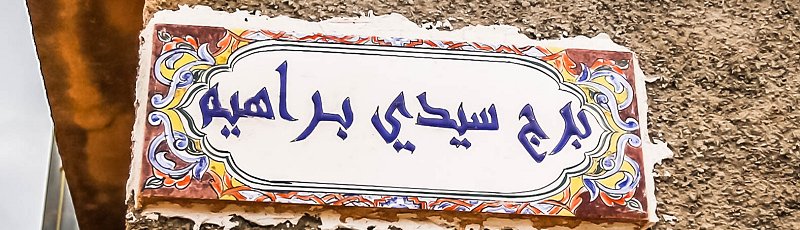 برج سيدي براهيم